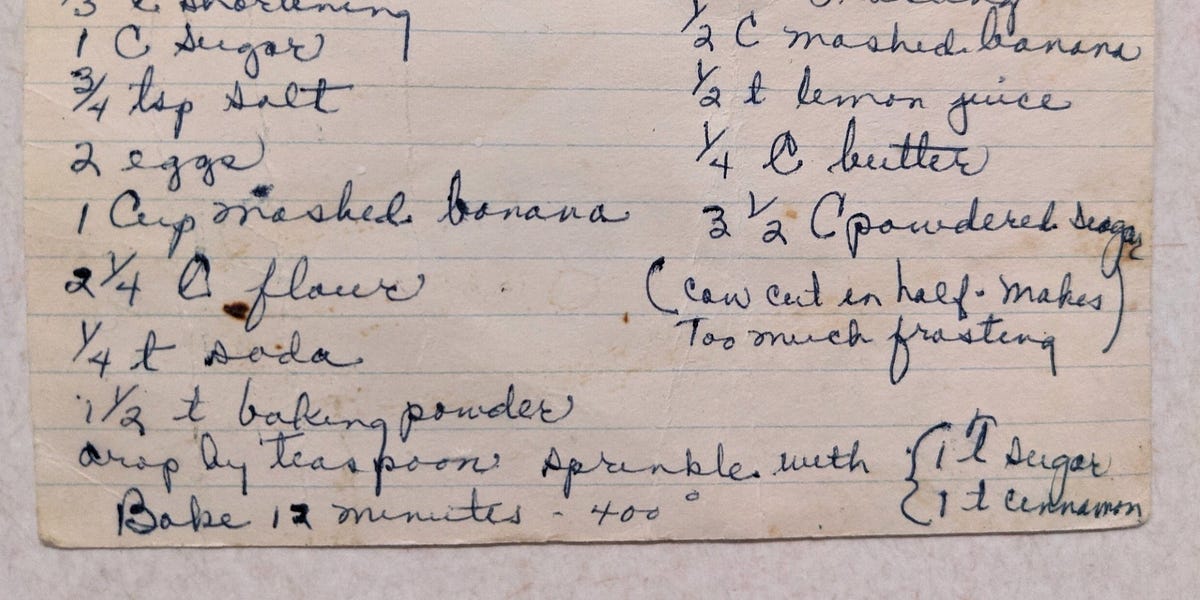 ⅔ C shortening
1 C Sugar
3/4 tsp salt
2 eggs
1 Cup mashed banana
2 1/4 C flour
1/4 t soda
1 1/2 t baking powder
drop by teaspoon sprinkle with { 1 T sugar
1 t cinnamon
Bake 12 minutes - 400°
Frosting
1/2 C mashed banana
1/2 t lemon juice
1/4 C butter
3 1/2 C powdered sugar
(can cut in half - makes
Too much frosting)